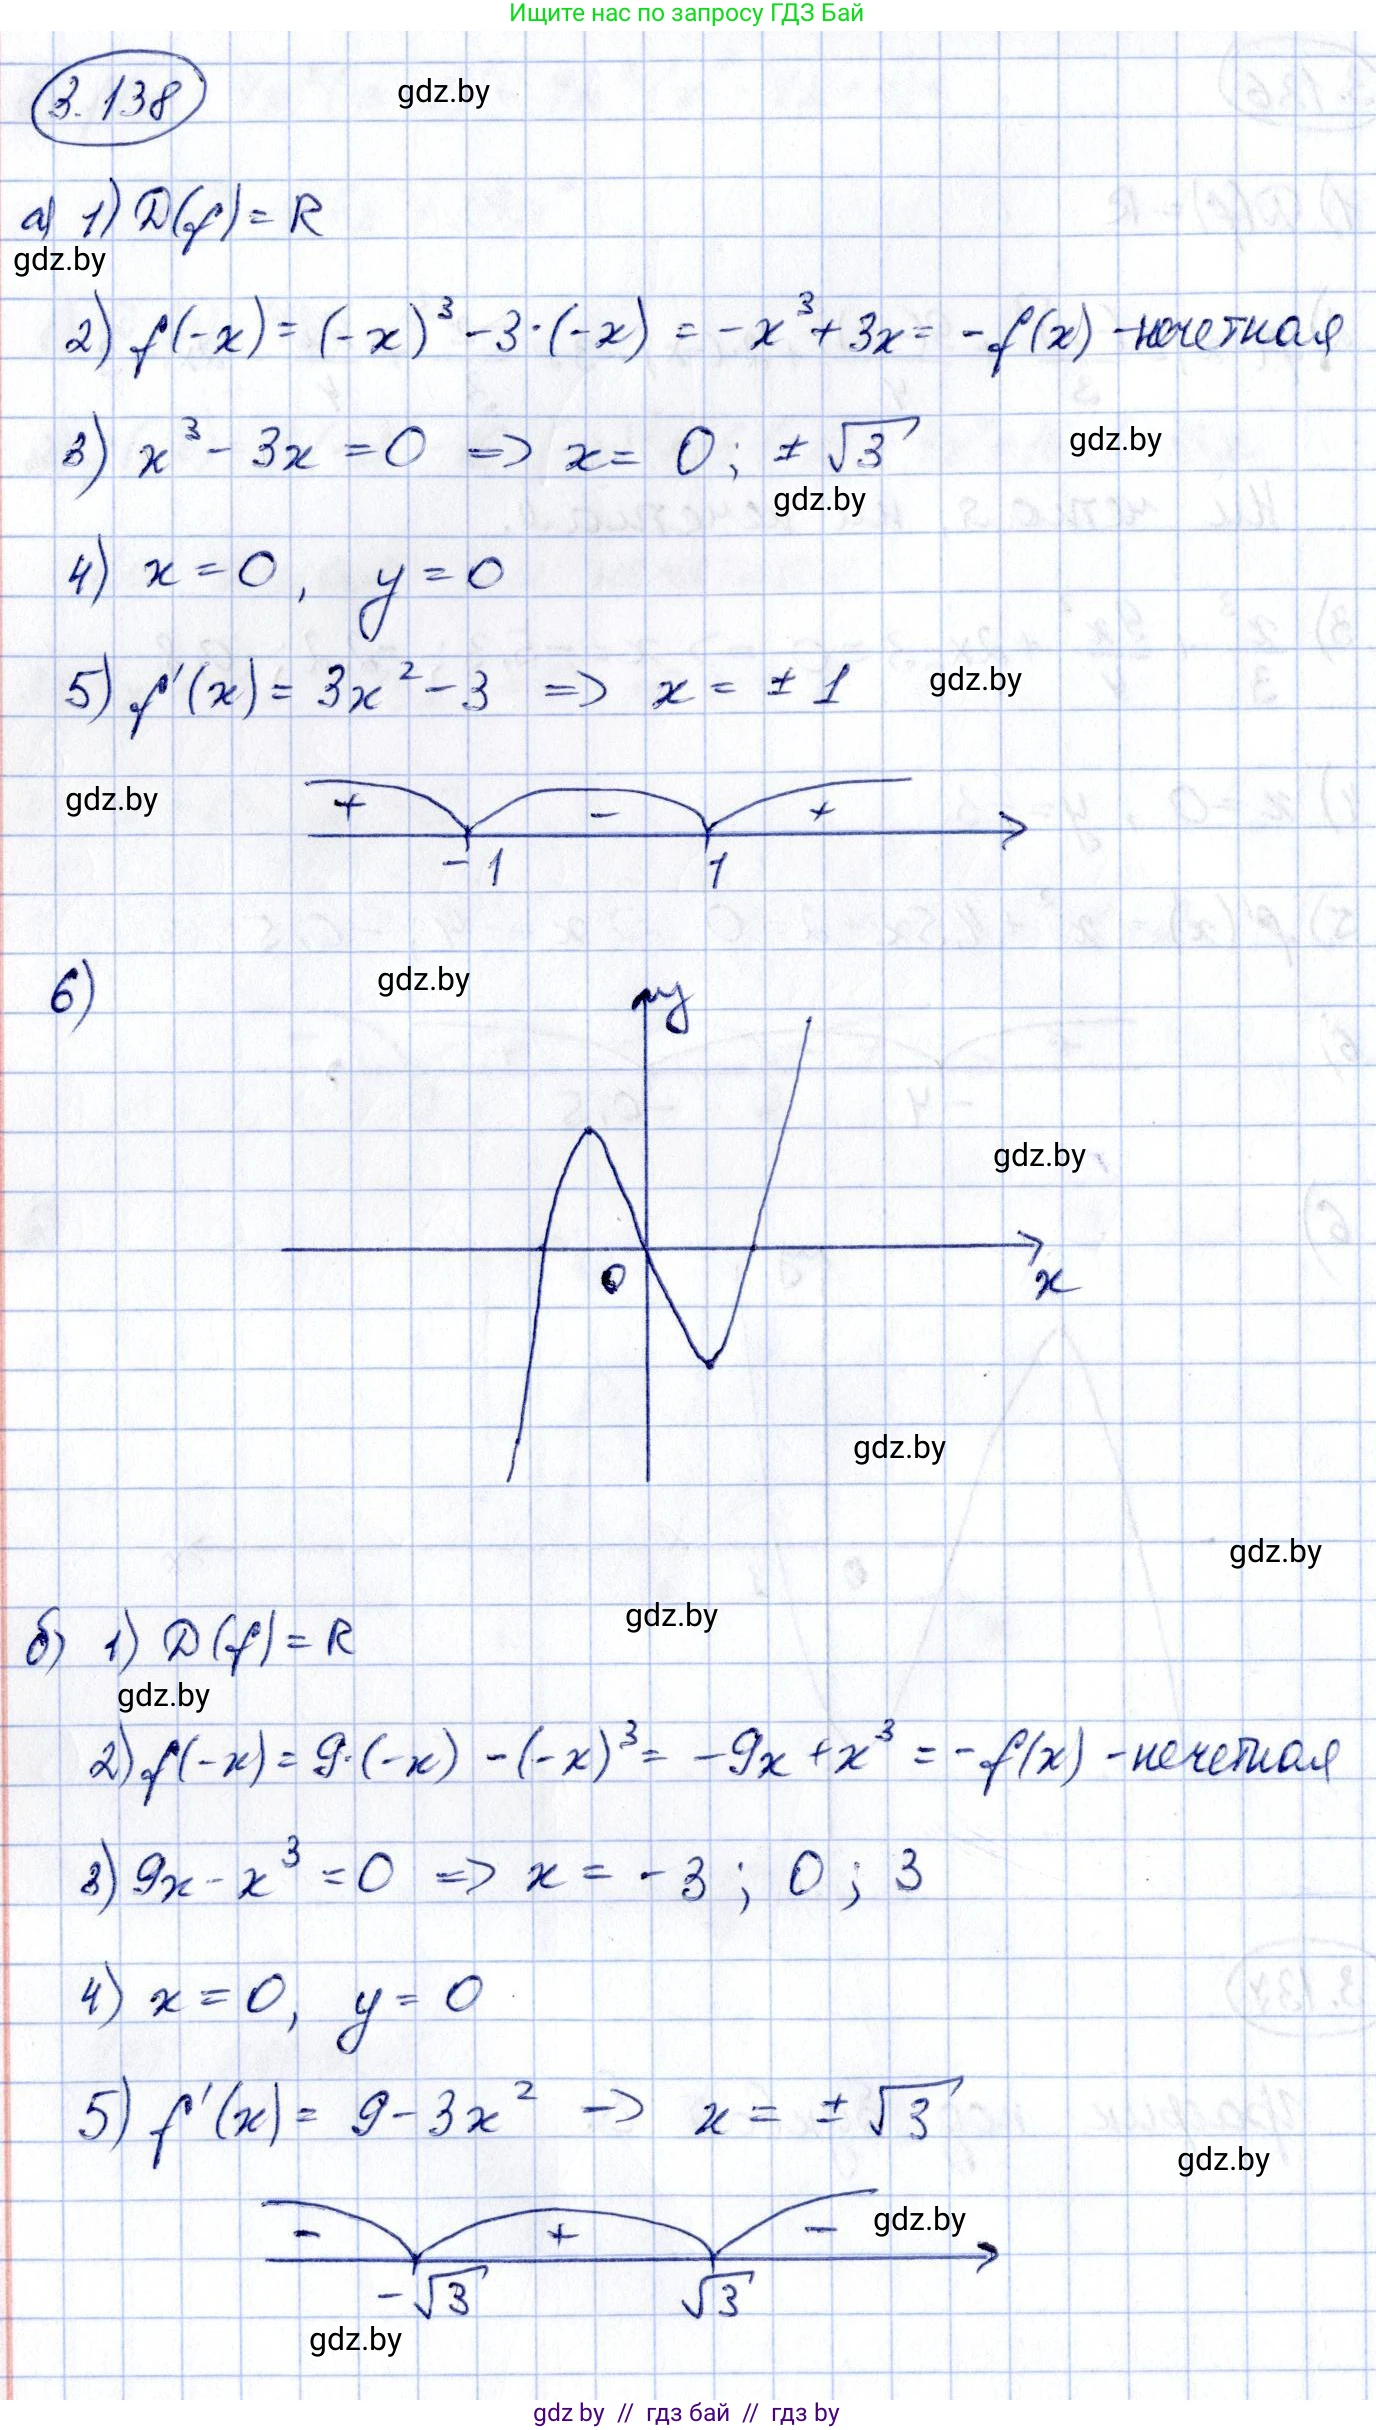 Ищите нас по запросу ГДЗ Бай
3.138
gdz.by
а) 1) D(f) = R
gdz.by
2) f(-x) = (-x)³ - 3·(-x) = -x³ + 3x = -f(x) - нечетная
3) x³ - 3x = 0 => x = 0; ± √3
gdz.by
gdz.by
4) x = 0, y = 0
5) f'(x) = 3x² - 3 => x = ± 1
gdz.by
gdz.by
+ - +
-1 1
6)
gdz.by
y
gdz.by
0
x
gdz.by
gdz.by
gdz.by
б) 1) D(f) = R
gdz.by
2) f(-x) = 9·(-x) - (-x)³ = -9x + x³ = -f(x) - нечетная
3) 9x - x³ = 0 => x = -3; 0; 3
4) x = 0, y = 0
5) f'(x) = 9 - 3x² => x = ± √3
gdz.by
- + -
gdz.by
-√3 √3
gdz.by
gdz by // гдз бай // гдз by